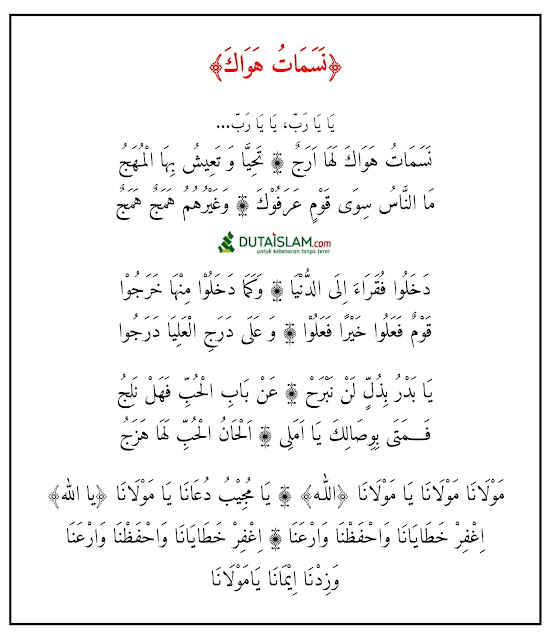 ﴿نَسَمَاتُ هَوَاكَ﴾
يَا يَا رَبّ، يَا يَا رَبّ...
نَسَمَاتُ هَوَاكَ لَهَا اَرَجٌ ۞ تَحْيَا وَ تَعِيشُ بِهَا الْمُهَجُ
مَا النَّاسُ سِوَى قَوْمٍ عَرَفُوْكَ ۞ وَغَيْرُهُمُ هَمَجٌ هَمَجٌ
DUTAISLAM.com
untuk kebenaran tanpa teror
دَخَلُوا فُقَرَاءَ اِلَى الدُّنْيَا ۞ وَكَمَا دَخَلُوْا مِنْهَا خَرَجُوْا
قَوْمٌ فَعَلُوا خَيْرًا فَعَلُوْا ۞ وَ عَلَى دَرَجِ الْعَلِيَا دَرَجُوا
يَا بَدْرُ بِذُلٍّ لَنْ نَبْرَحْ ۞ عَنْ بَابِ الْحُبِّ فَهَلْ نَلِجُ
فَـــمَتَى بِوِصَالِكَ يَا اَمَلِى ۞ اَلْحَانُ الْحُبِّ لَهَا هَزَجُ
مَوْلَانَا مَوْلَانَا يَا مَوْلَانَا ﴿الله﴾ ۞ يَا مُجِيْبُ دُعَانَا يَا مَوْلَانَا ﴿يا الله﴾
اِغْفِرْ خَطَايَانَا وَاحْفَظْنَا وَارْعَنَا ۞ اِغْفِرْ خَطَايَانَا وَاحْفَظْنَا وَارْعَنَا
وَزِدْنَا اِيْمَانَا يَامَوْلَانَا